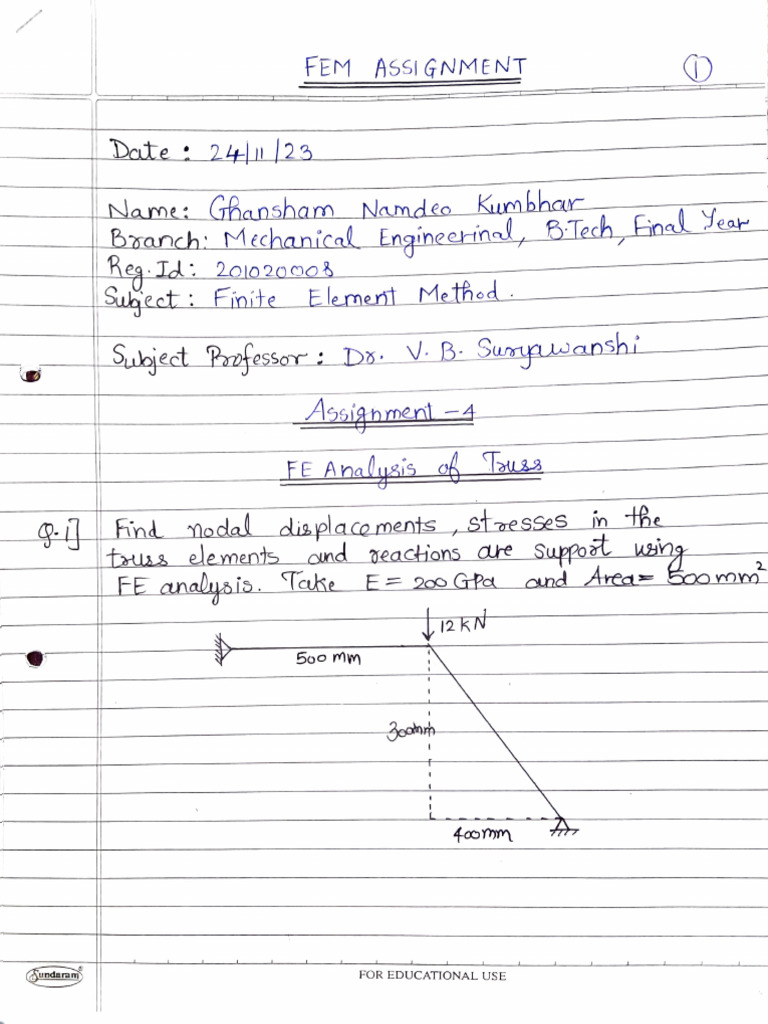 FEM ASSIGNMENT
1
Date : 24/11/23
Name: Ghansham Namdeo Kumbhar
Branch: Mechanical Engineerinal, B.Tech, Final Year
Reg.Id: 201020008
Subject : Finite Element Method.
Subject Professor : Dr. V. B. Suryawanshi
Assignment - 4
FE Analysis of Truss
Q.1] Find nodal displacements, stresses in the
truss elements and reactions are support using
FE analysis. Take E = 200 GPa and Area = 500 mm²
12 kN
500 mm
300mm
400mm
Sundaram®
FOR EDUCATIONAL USE